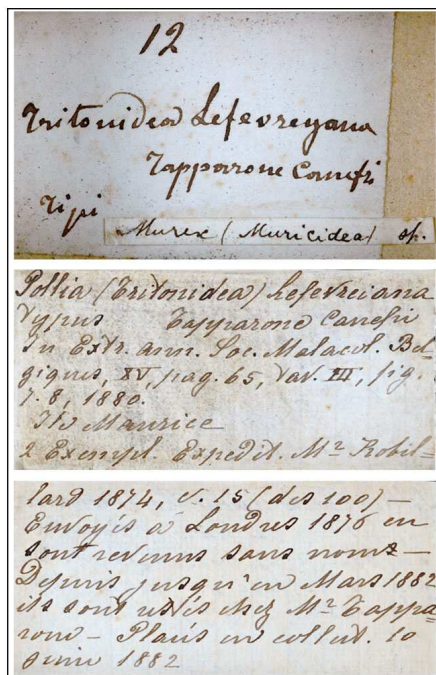 12
Tritonidea Lefevreyana
Tapparone Canefri
Tipi
Murex (Muricidea) sp.
Pollia (Tritonidea) Lefevreiana
Typus Tapparone Canefri
In Extr. ann. Soc. Malacol. Bel-
giques, XV, pag. 65, Tav. III, fig.
7. 8, 1880.
Ile Maurice
2 Exempl. Expedit. Mr. Robil=
lard 1874, v. 15 (des 100) —
Envoyés à Londres 1876 en
sont revenus sans noms —
Depuis jusqu'en Mars 1882
ils sont restés chez Mr. Tappa=
rone — Placés en collect. 10
Juin 1882